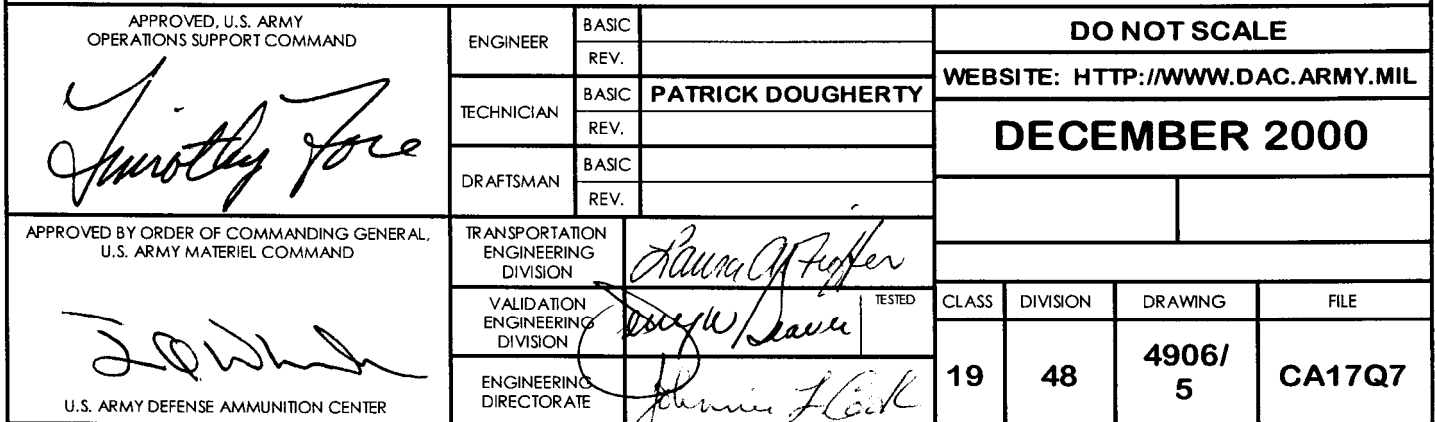 APPROVED, U.S. ARMY
OPERATIONS SUPPORT COMMAND
Timothy Fore
APPROVED BY ORDER OF COMMANDING GENERAL,
U.S. ARMY MATERIEL COMMAND
U.S. ARMY DEFENSE AMMUNITION CENTER
ENGINEER
BASIC
REV.
TECHNICIAN
BASIC
PATRICK DOUGHERTY
REV.
DRAFTSMAN
BASIC
REV.
TRANSPORTATION
ENGINEERING
DIVISION
Laura A
VALIDATION
ENGINEERING
DIVISION
Jerry W Beaver
TESTED
ENGINEERING
DIRECTORATE
DO NOT SCALE
WEBSITE: HTTP://WWW.DAC.ARMY.MIL
DECEMBER 2000
CLASS
DIVISION
DRAWING
FILE
19
48
4906/
5
CA17Q7